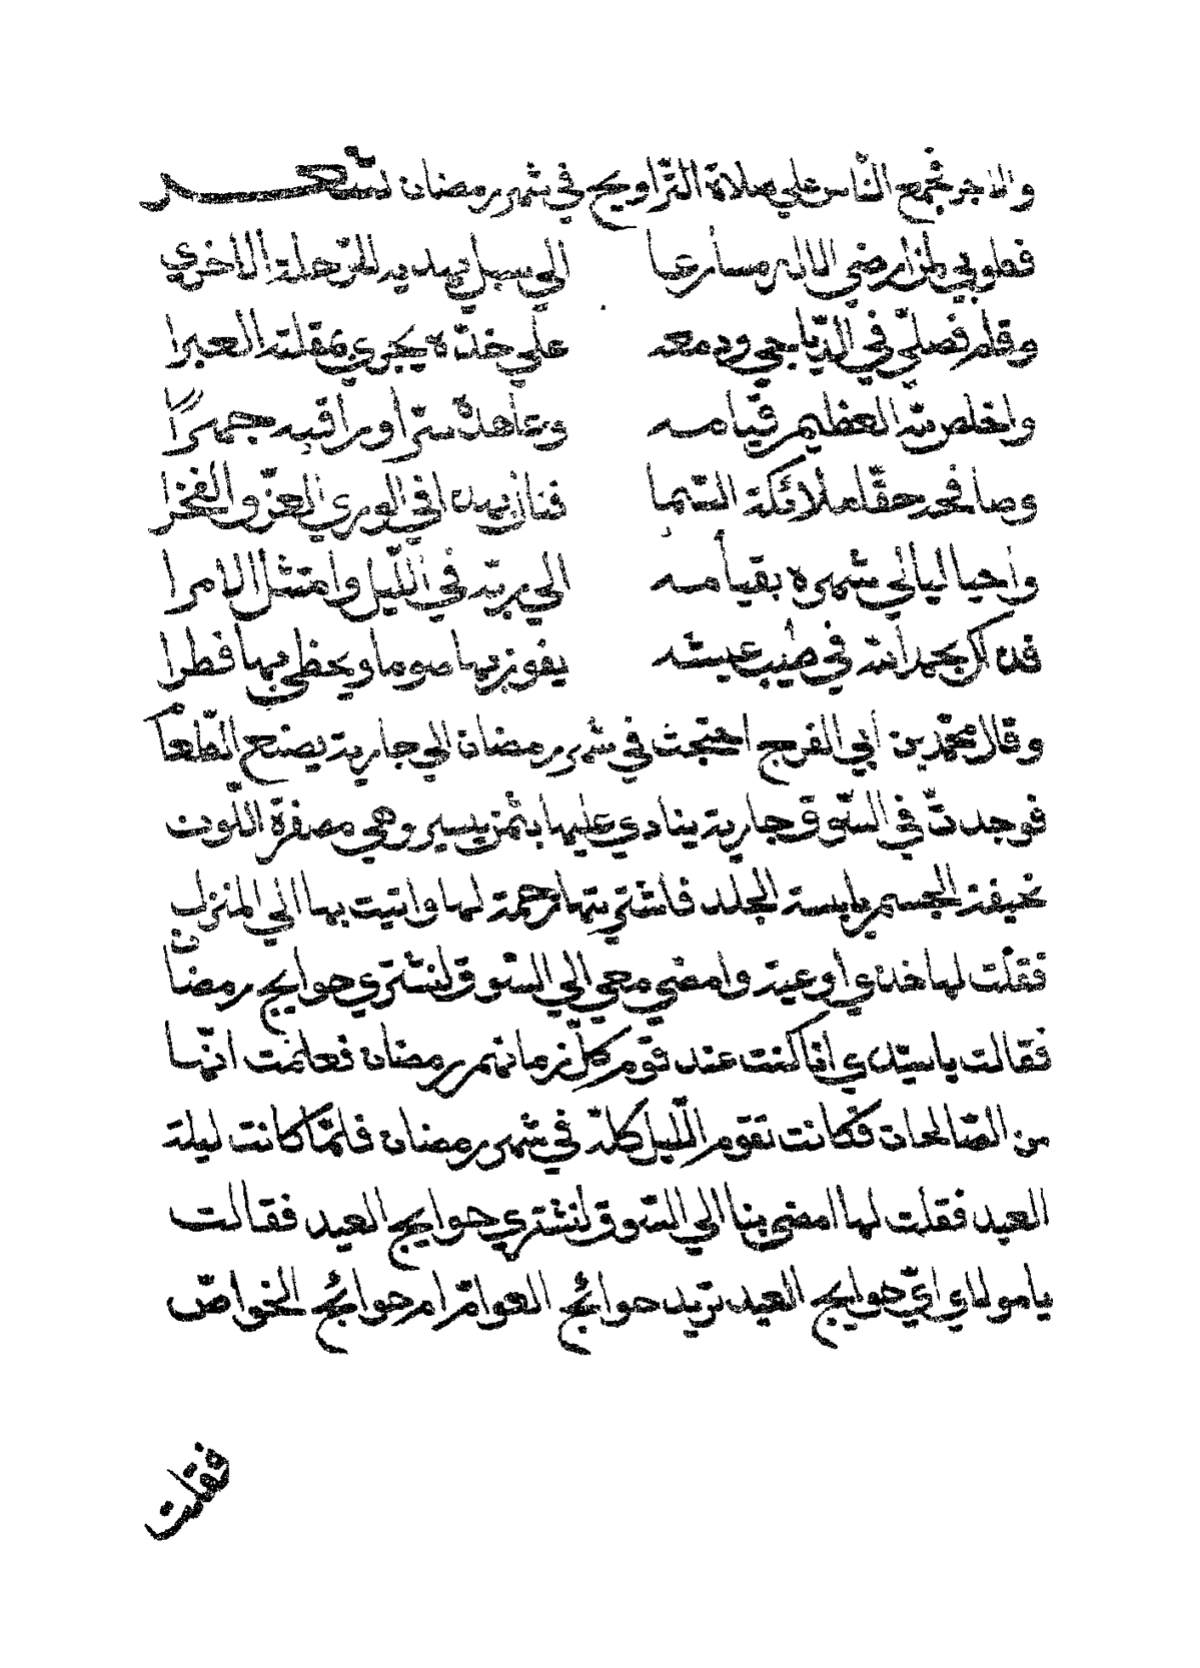 والاجر فجمع الناس علي صلاة التّراويح في شهر رمضان شعر
فطوبي لمن ارضي الاله مسارعا الي سبل يهديه للرّحلة الاخري
وقام فصلّي في الدّياجي ودمعه علي خدّه يجري بمقلته العبرا
واخلص لله العظيم قيامه وعاهده سرّا وراقبه جهرًا
وصافحه حقّا ملائكة السّما فنال بهذا في الوري العزّ والفخرا
واحيا ليالي شهره بقيامه الي بربّه في اللّيل وامتثل الامرا
فذاك بحمد الله في طيب عيشه يفوز بها صوما ويحظي بها فطرا
وقال محمّد بن ابي الفرج احتجت في شهر رمضان الي جارية يصنع الطّعا
فوجدتّ في السّوق جارية ينادي عليها بثمن يسير وهي مصفرّة اللّون
نحيفة الجسم يابسة الجلد فاشتريتها رحمة لها واتيت بها الي المنزل
فقلت لها خذي اوعية وامضي معي الي السّوق لنشتري حوايج رمضان
فقالت يا سيّدي انا كنت عند قوم كلّ زمانهم رمضان فعلمت انّها
من الصّالحات فكانت تقوم اللّيل كلّه في شهر رمضان فلمّا كانت ليلة
العيد فقلت لها امضي بنا الي السّوق لنشتري حوايج العيد فقالت
يا مولاي ايّ حوايج العيد تريد حوائج العوامّ ام حوائج الخواصّ
فقلت